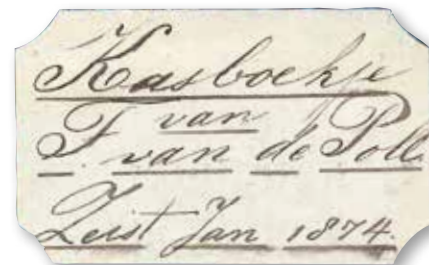 Kasboekje
van
F. van de Poll
Zeist Jan 1874.